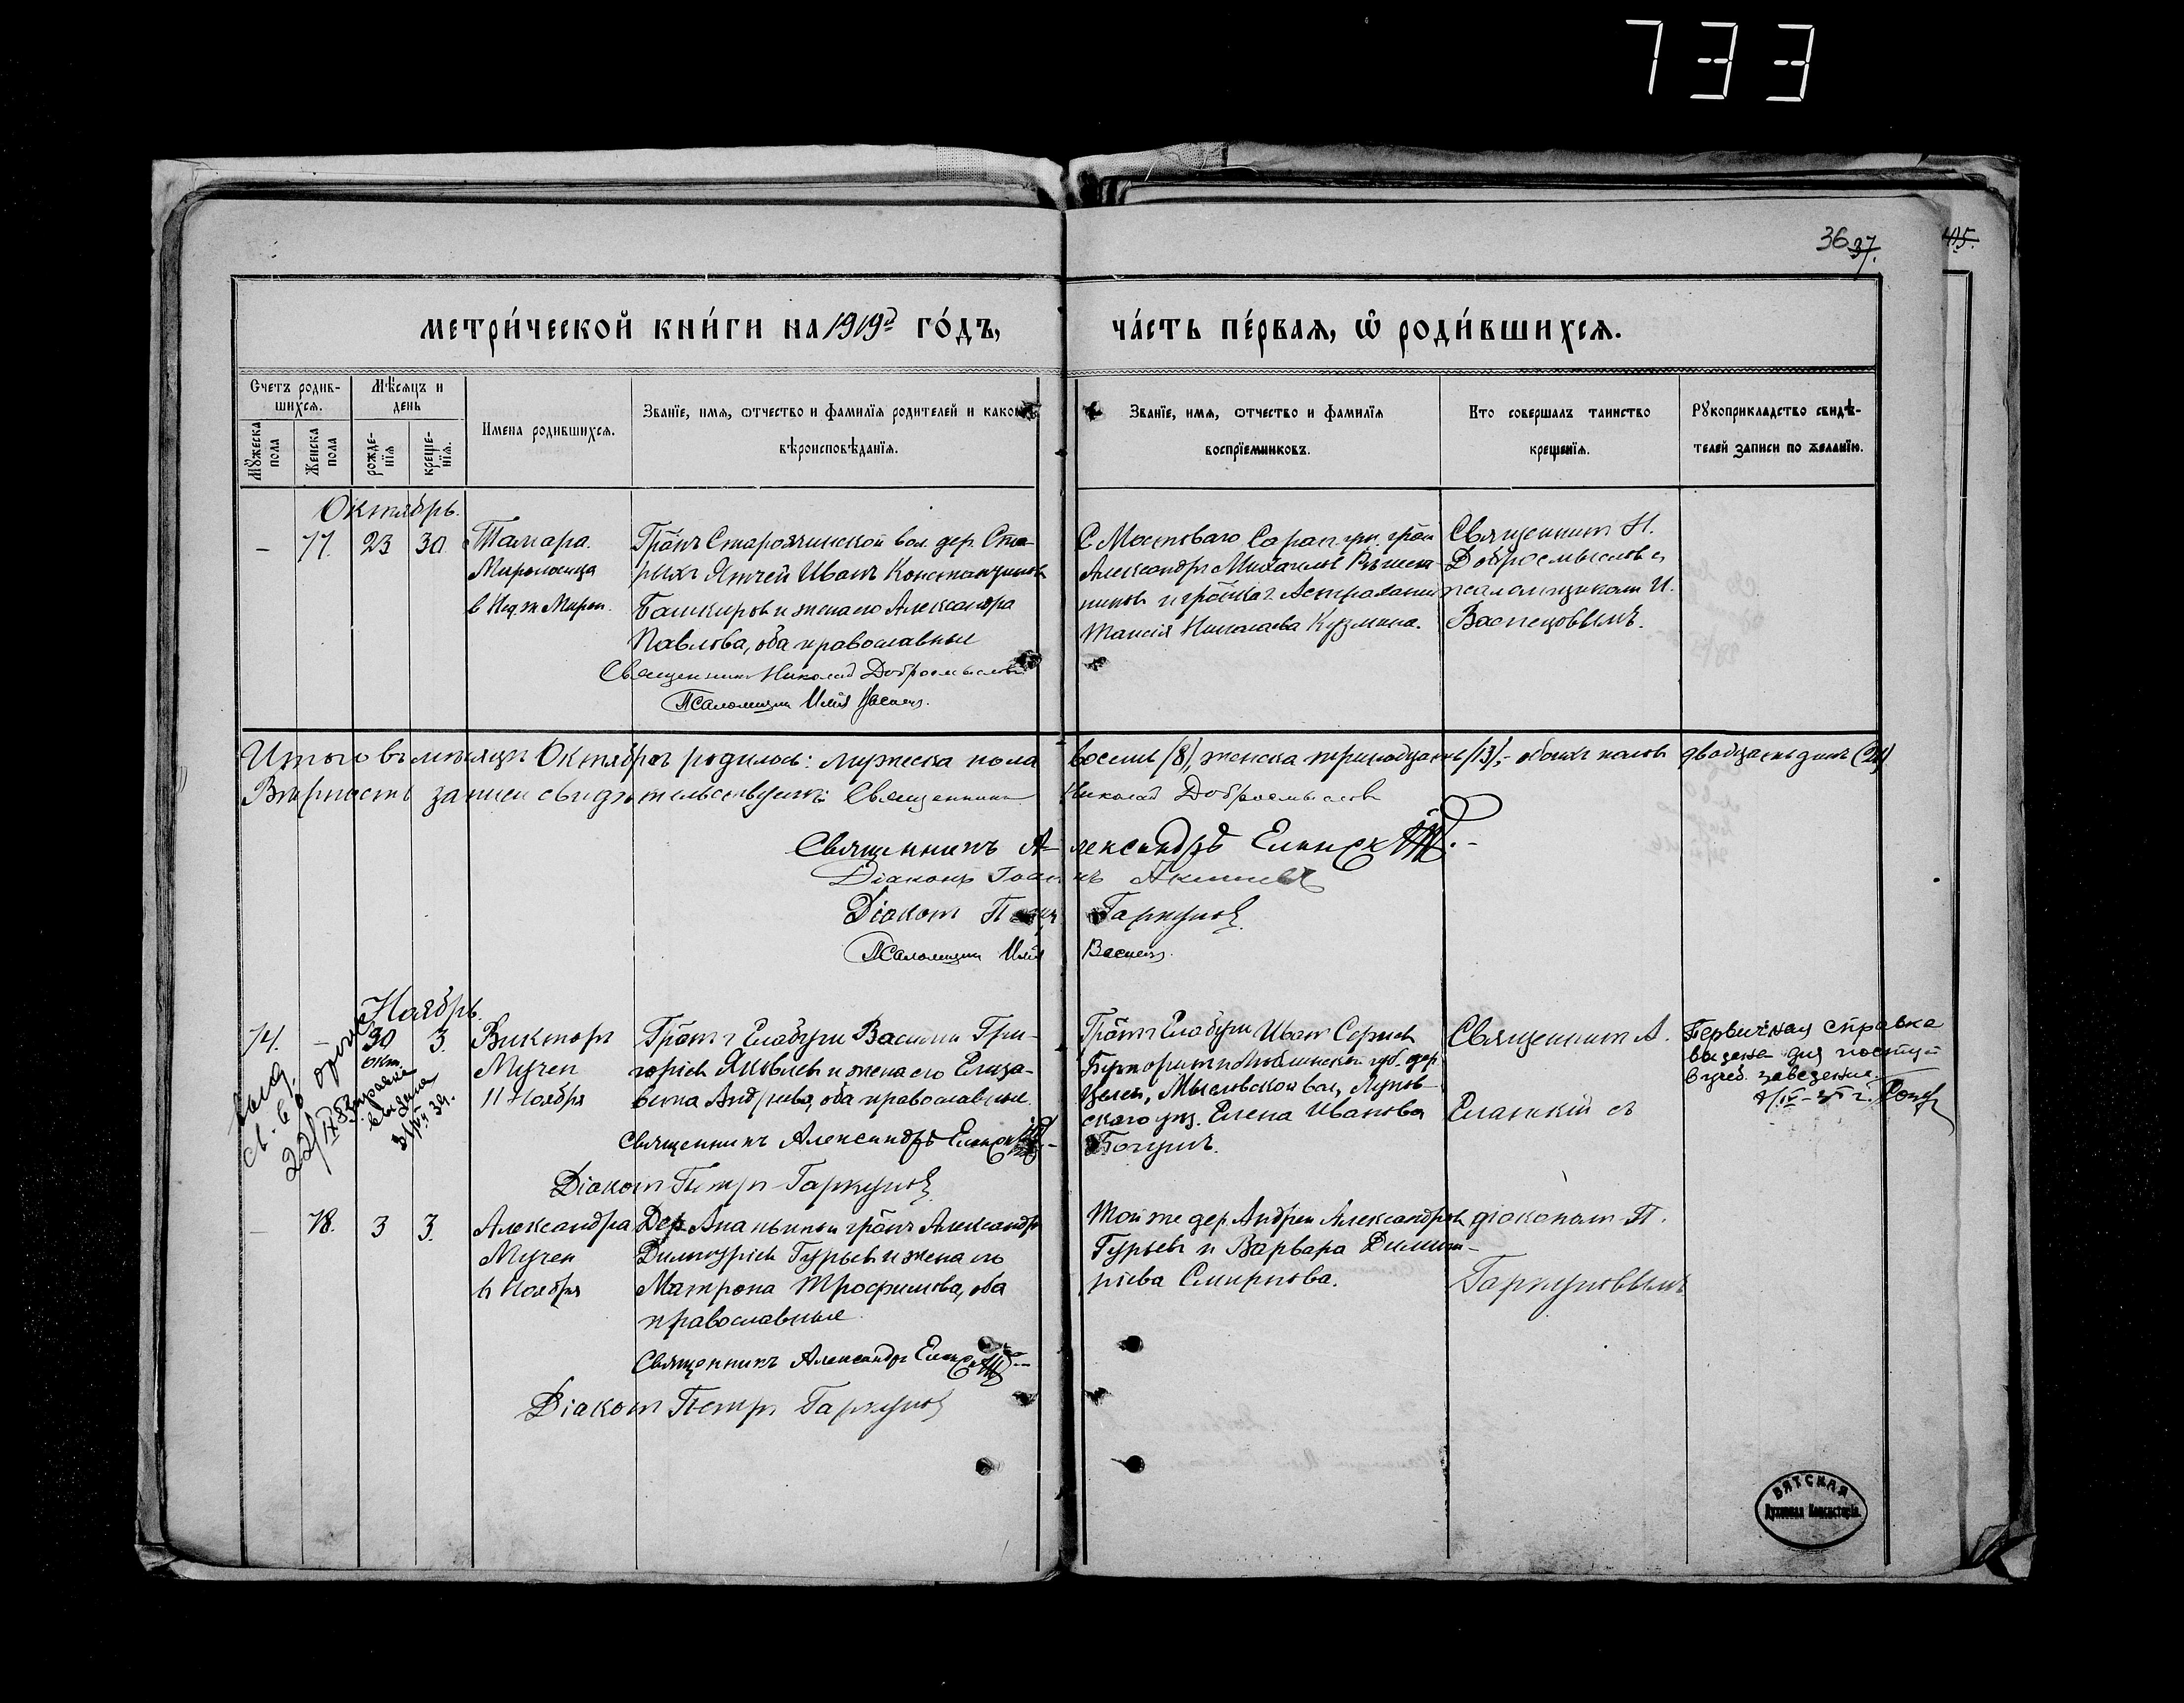 733
36 37.
415.
МЕТРИ́ЧЕСКОЙ КНИ́ГИ НА 1919й ГО́ДЪ,
ЧА́СТЬ ПЕ́РВАЯ, Ѡ РОДИ́ВШИХСЯ.
Счетъ родив-
шихся.
Мѣсяцъ и
день
Мꙋжеска
пола
Женска
пола
рожде-
нїя
креще-
нїя.
Имена родившихся.
Званїе, имя, ѿчество и фамилїя родителей и какого
вѣроисповѣданїя.
Званїе, имя, ѿчество и фамилїя
воспрїемниковъ.
Кто совершалъ таинство
крещенїя.
Рꙋкоприкладство свидѣ-
телей записи по желанїю.
Октябрь.
– 77. 23 30. Тамара.
Мироносица
в Нед. ж Мирон.
Гра҃нъ Староятчинской вол. дер. Ста-
рыхъ Ятчей Иванъ Константиновъ
Башкиров и жена его Александра
Павлова, оба православные
Священникъ Николай Добромысловъ
Псаломщикъ Илія Васнец.
С Мостоваго Сарап. гра҃н
Александръ Михаилов
и гра҃нка г. Астрахани
Таисія Николаева Кузмина.
Священник Н.
Добромыслов с
псаломщиком И.
Васнецовымъ.
Итого въ мѣсяцѣ Октябрѣ родилось: мужеска пола восемь (8), женска тринадцать (13), – обоихъ половъ двадцать одинъ (21)
Вѣрность записи свидѣтельствуемъ: Священникъ Николай Добромысловъ
Священникъ Александръ Елански
Діаконъ Іоаннъ Акишевъ
Діаконъ Петръ Гаркуновъ
Псаломщикъ Илія Васнец.
Ноябрь.
74. – 30 окт. 3. Викторъ
Мучен
11 Ноября
справка
выдана
Гра҃нъ г Елабуги Василий Гри-
горіев Яковлевъ и жена его Елиза-
вета Андреева, оба православные.
Священникъ Александръ Елански
Діаконъ Петръ Гаркуновъ
Гра҃нъ г Елабуги Иван Сергиев
Буторин и Люблинской губ. дер.
Целей, Мысловской вол, Луков-
скаго уез. Елена Иванова
Богушъ.
Священник А.
Еланскій съ
Первичная справка
выдана для поступ
в учеб. заведение.
– 78. 3 3. Александра
Мучен
6 Ноября
Дер Ананьиной гра҃нъ Александръ
Димитріев Гурьевъ и жена его
Матрона Трофимова, оба
православные
Священникъ Александръ Елански
Діаконъ Петръ Гаркуновъ
Той же дер. Андрей Александров
Гурьевъ и Варвара Димит-
ріева Смирнова.
діаконом П.
Гаркуновымъ
ВЯТСКАЯ
Духовная Консисторія.